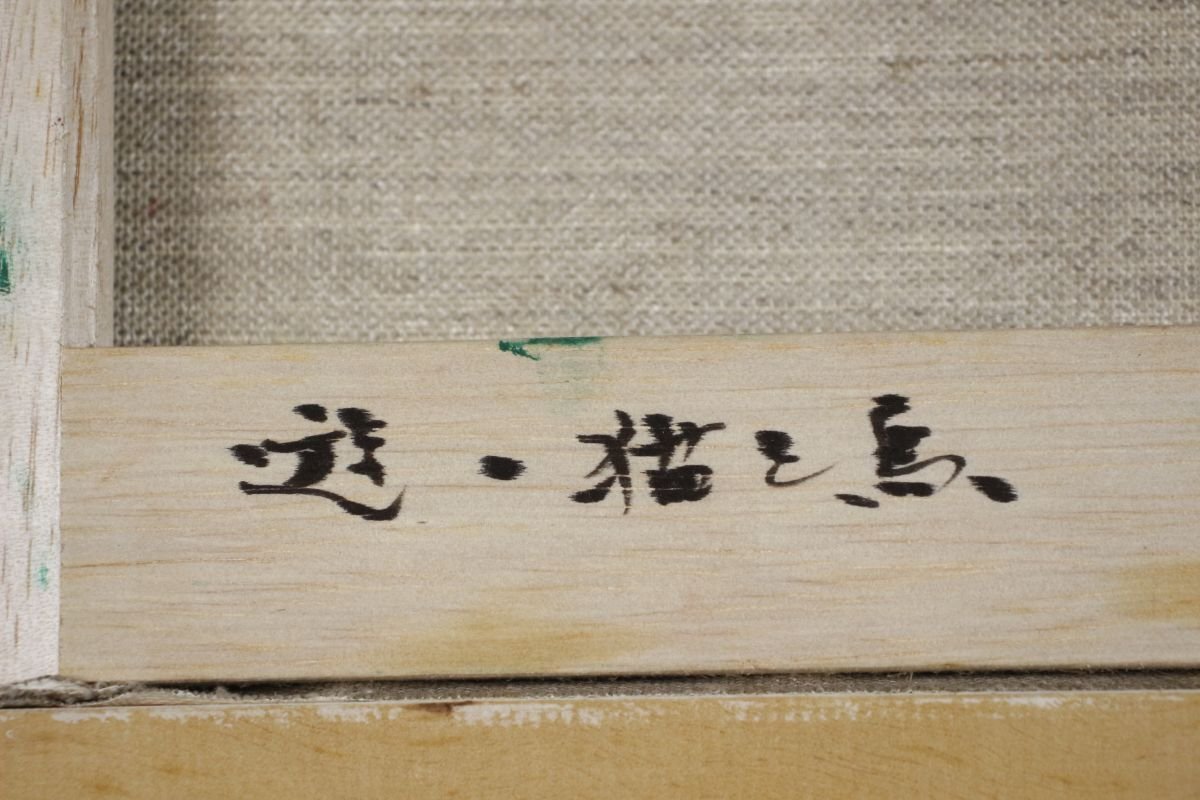 遊・猫と鳥